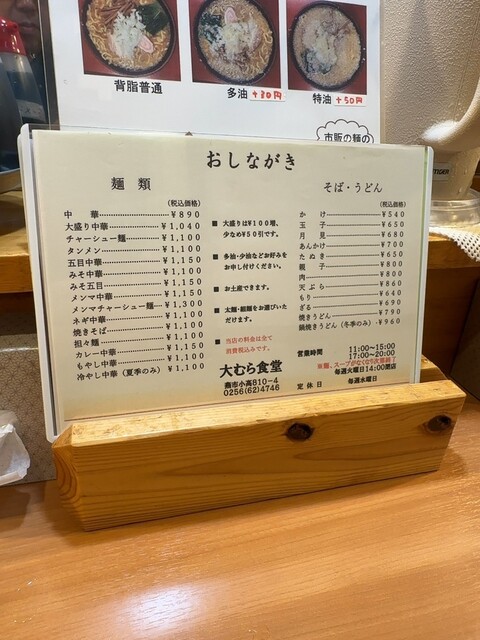 背脂普通
多油 +30円
特油 +50円
市販の麺の
TIGER
おしながき
麺類
(税込価格)
中華 ¥890
大盛り中華 ¥1,040
チャーシュー麺 ¥1,100
タンメン ¥1,100
五目中華 ¥1,150
みそ中華 ¥1,100
みそ五目 ¥1,150
メンマ中華 ¥1,150
メンマチャーシュー麺 ¥1,300
ネギ中華 ¥1,100
焼きそば ¥1,100
担々麺 ¥1,100
カレー中華 ¥1,150
もやし中華 ¥1,100
冷やし中華(夏季のみ) ¥1,100
■ 大盛りは¥100増、
少なめ¥50引です。
■ 多油・少油などお好みを
お申し付けください。
■ お土産できます。
■ 太麺・細麺をお選びいた
だけます。
■ 当店の料金は全て
消費税込みです。
大むら食堂
燕市小高810-4
0256(62)4746
そば・うどん
(税込価格)
かけ ¥540
玉子 ¥650
月見 ¥680
あんかけ ¥700
たぬき ¥650
親子 ¥800
肉 ¥800
天ぷら ¥860
もり ¥640
ざる ¥690
焼きうどん ¥790
鍋焼きうどん(冬季のみ) ¥960
営業時間 11:00~15:00
17:00~20:00
※麺、スープがなくなり次第終了
毎週火曜日14:00閉店
定休日 毎週水曜日